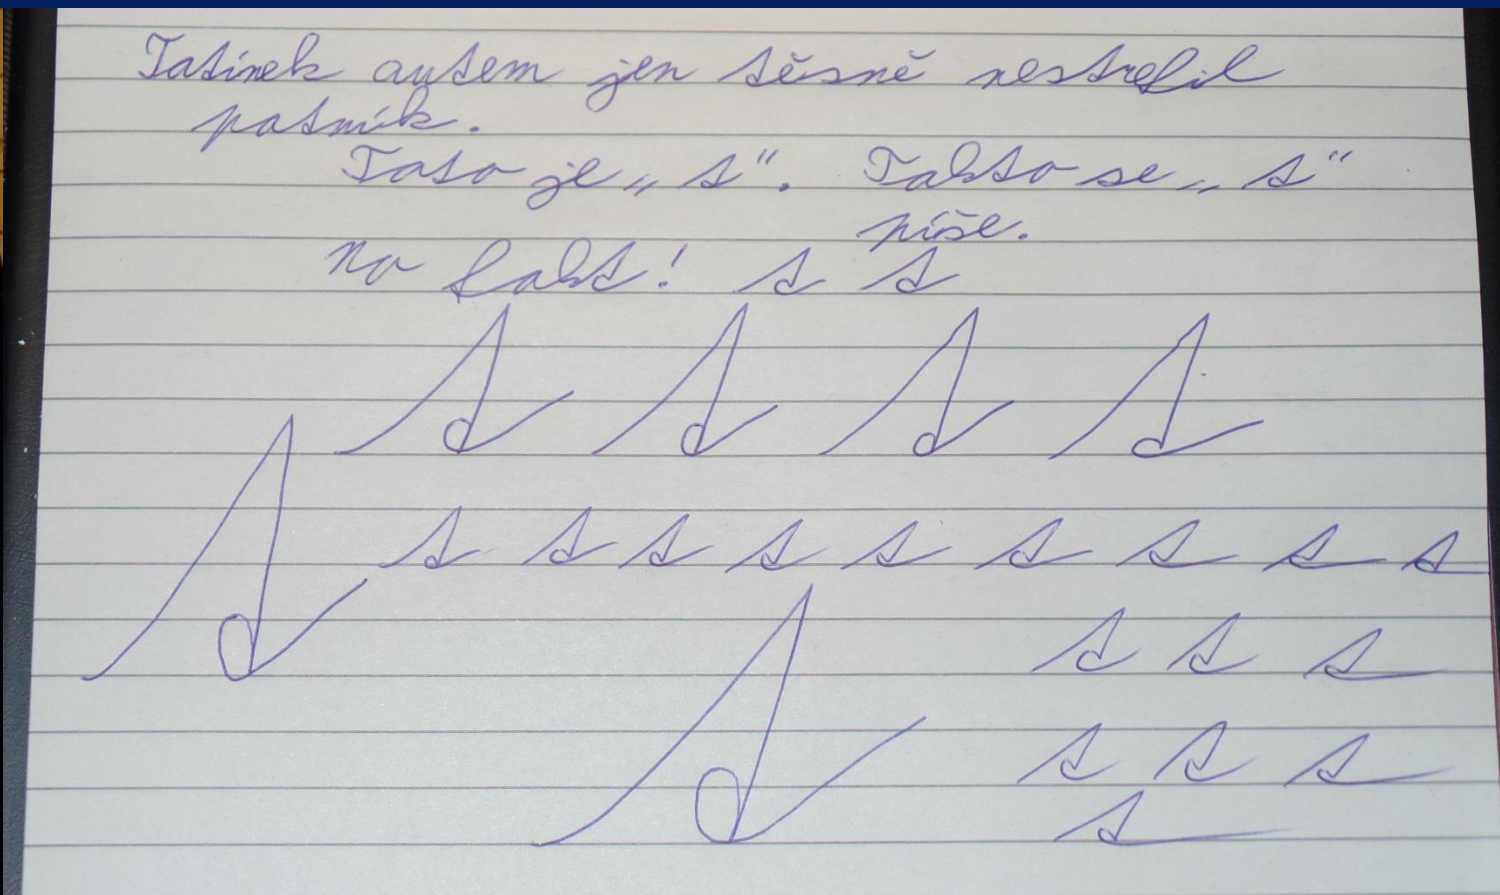 Tatínek autem jen těsně nestrefil
patník.
Toto je „t“. Takto se „t“
píše.
No fakt! t t
t t t t
t
t t t t t t t t t
t t t
t
t t t
t